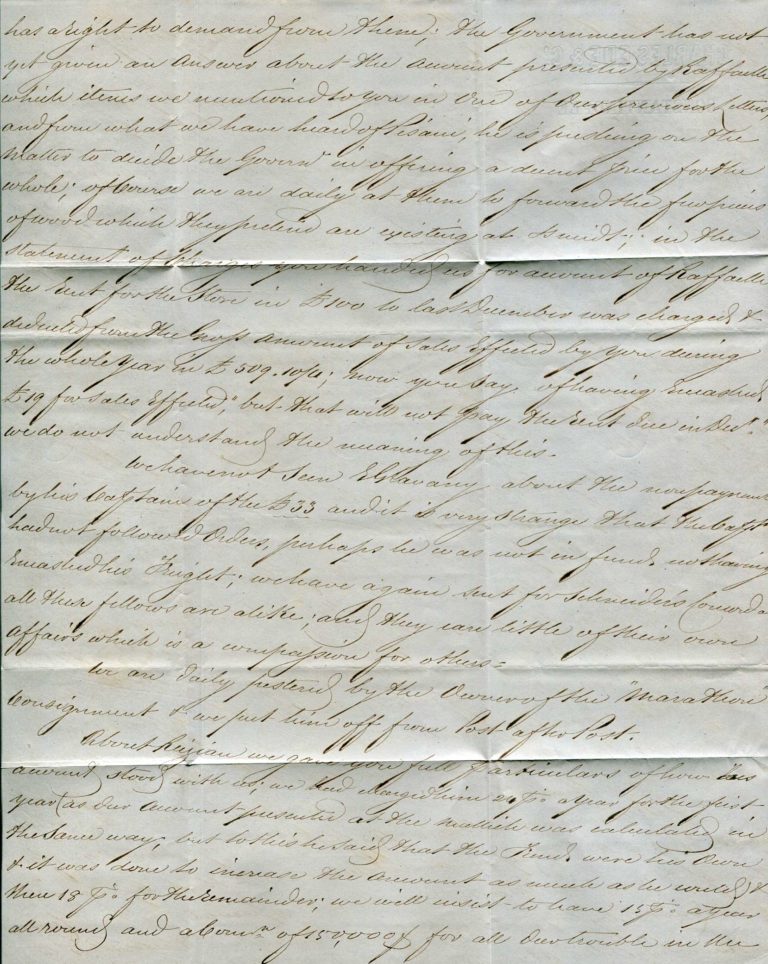 has a right to demand from them; the Government has not
yet given an answer about the amount presented by Raffaelli
which items we mentioned to you in One of Our previous Letters,
and from what we have heard of Pisani, he is pushing on the
matter to decide the Governt in offering a decent price for the
whole; of Course we are daily at them to forward the
of wood which they pretend are existing at Ismidt; in the
statement of charges you handed us for account of Raffaelli
the Rent for the Store in £100 to last December was charged &
deducted from the Gross Amount of Sales Effected by you during
the whole year in £509.10/11; now you Say of having Encashed
£19 for Sales Effected, "but that will not pay the Rent due in Decr."
we do not understand the meaning of this.
We have not Seen about the nonpayment
by his Captains of the £33 and it is very strange that the Captn
had not followed Orders, perhaps he was not in funds not having
Encashed his Freight; we have again sent for Schneider's
all these fellows are alike; and they care little of their own
Affairs which is a compassion for others.
We are daily pestered by the Owner of the "Marathon"
Consignment & we put him off from Post after Post.
About we gave you full particulars of how his
account stood with us; we had charged him 24 p% a year for the first
year (as Our Account presented at the was calculated in
the Same way; but to this he said that the Funds were his Own
& it was done to increase the Amount as much as he could) &
then 18 p% for the remainder; we will insist to have 15 p% a year
all round and a Comn of 150,000 for all Our trouble in the